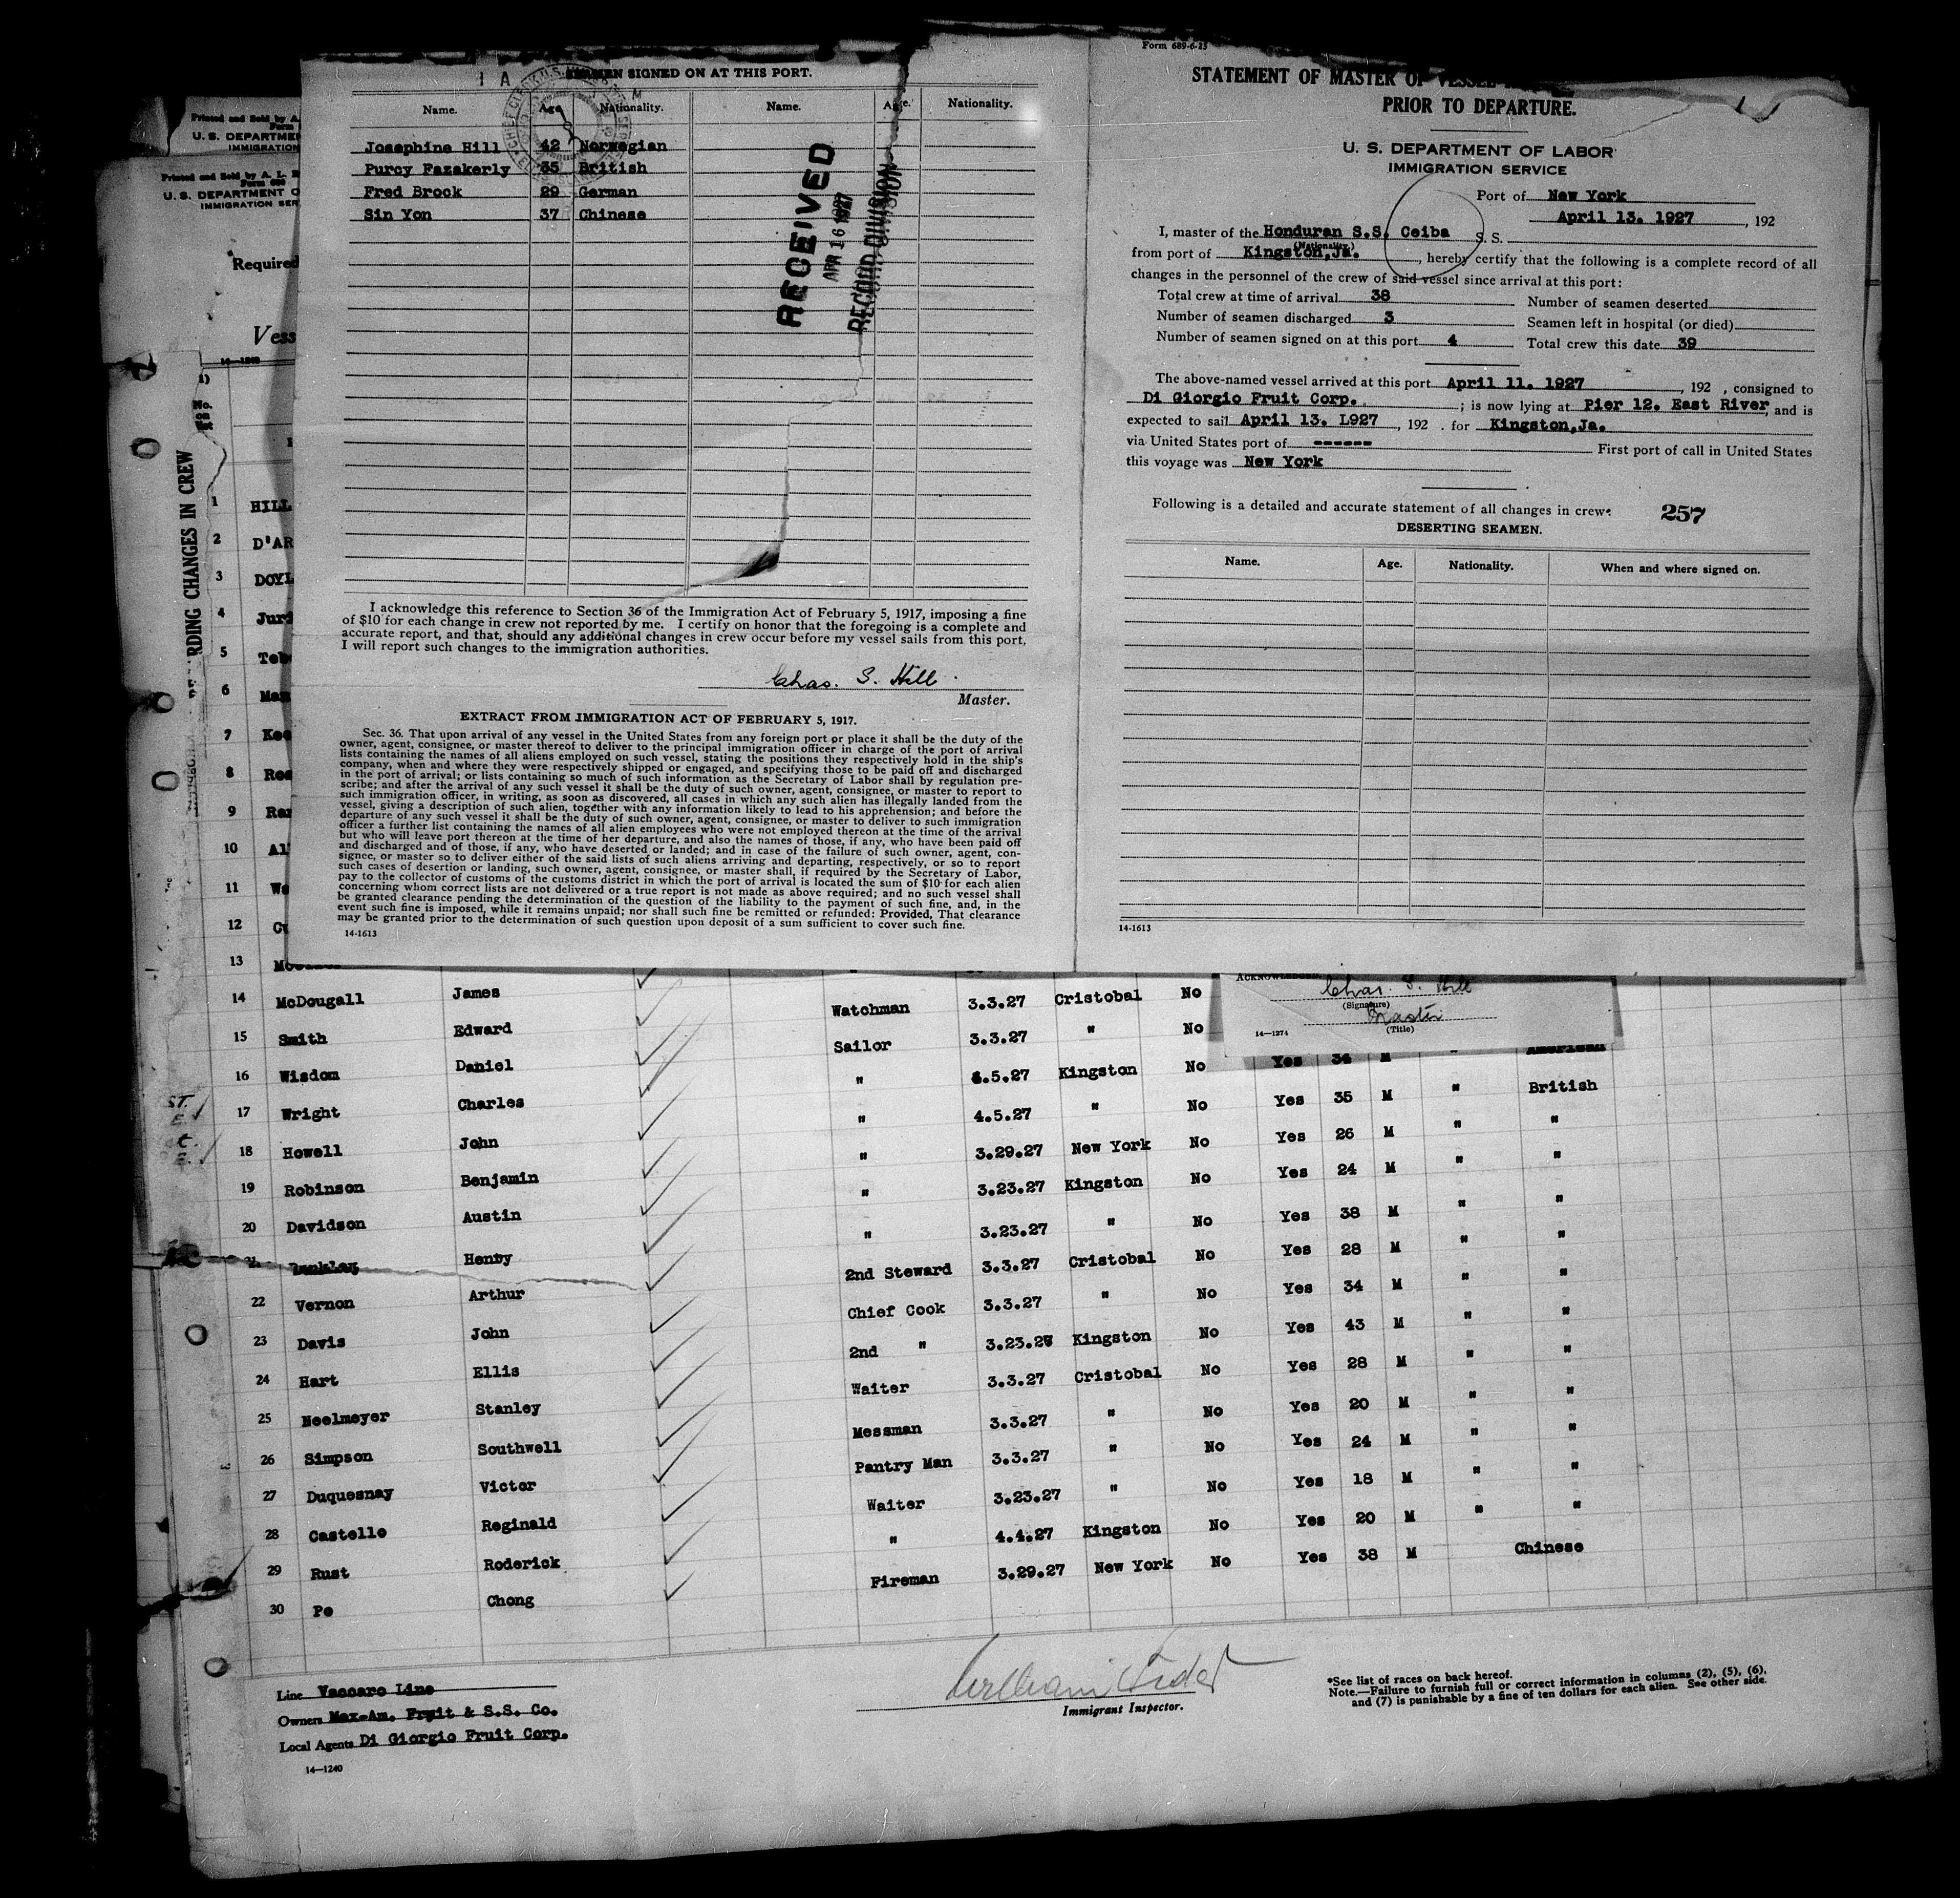 SIGNED ON AT THIS PORT.
Name. Age Nationality. Name. Age. Nationality.
Josephine Hill 42 Norwegian
Purcy Fazakerly 35 British
Fred Brock 29 German
Sin Yon 37 Chinese
RECEIVED
APR 16 1927
RECORD DIVISION
I acknowledge this reference to Section 36 of the Immigration Act of February 5, 1917, imposing a fine
of $10 for each change in crew not reported by me. I certify on honor that the foregoing is a complete and
accurate report, and that, should any additional changes in crew occur before my vessel sails from this port,
I will report such changes to the immigration authorities.
Chas. S. Hill
Master.
EXTRACT FROM IMMIGRATION ACT OF FEBRUARY 5, 1917.
Sec. 36. That upon arrival of any vessel in the United States from any foreign port or place it shall be the duty of the
owner, agent, consignee, or master thereof to deliver to the principal immigration officer in charge of the port of arrival
lists containing the names of all aliens employed on such vessel, stating the positions they respectively hold in the ship's
company, when and where they were respectively shipped or engaged, and specifying those to be paid off and discharged
in the port of arrival; or lists containing so much of such information as the Secretary of Labor shall by regulation pre-
scribe; and after the arrival of any such vessel it shall be the duty of such owner, agent, consignee, or master to report to
such immigration officer, in writing, as soon as discovered, all cases in which any such alien has illegally landed from the
vessel, giving a description of such alien, together with any information likely to lead to his apprehension; and before the
departure of any such vessel it shall be the duty of such owner, agent, consignee, or master to deliver to such immigration
officer a further list containing the names of all alien employees who were not employed thereon at the time of the arrival
but who will leave port thereon at the time of her departure, and also the names of those, if any, who have been paid off
and discharged and of those, if any, who have deserted or landed; and in case of the failure of such owner, agent, con-
signee, or master so to deliver either of the said lists of such aliens arriving and departing, respectively, or so to report
such cases of desertion or landing, such owner, agent, consignee, or master shall, if required by the Secretary of Labor,
pay to the collector of customs of the customs district in which the port of arrival is located the sum of $10 for each alien
concerning whom correct lists are not delivered or a true report is not made as above required; and no such vessel shall
be granted clearance pending the determination of the question of the liability to the payment of such fine, and, in the
event such fine is imposed, while it remains unpaid; nor shall such fine be remitted or refunded: Provided, That clearance
may be granted prior to the determination of such question upon deposit of a sum sufficient to cover such fine.
14-1613
Form 689-6-25
STATEMENT OF MASTER OF VESSEL
PRIOR TO DEPARTURE.
U. S. DEPARTMENT OF LABOR
IMMIGRATION SERVICE
Port of New York
April 13. 1927, 192
I, master of the Honduran S.S. Ceiba S. S.
(Nationality.)
from port of Kingston,Ja., hereby certify that the following is a complete record of all
changes in the personnel of the crew of said vessel since arrival at this port:
Total crew at time of arrival 38 Number of seamen deserted
Number of seamen discharged 3 Seamen left in hospital (or died)
Number of seamen signed on at this port 4 Total crew this date 39
The above-named vessel arrived at this port April 11. 1927, 192 , consigned to
Di Giorgio Fruit Corp. ; is now lying at Pier 12. East River, and is
expected to sail April 13. L927, 192 . for Kingston,Ja.
via United States port of ------ First port of call in United States
this voyage was New York
Following is a detailed and accurate statement of all changes in crew: 257
DESERTING SEAMEN.
Name. Age. Nationality. When and where signed on.
14-1613
Printed and Sold by A.
Form
U. S. DEPARTMEN
IMMIGRATION
Printed and Sold by A. L.
U. S. DEPARTMENT O
IMMIGRATION SER
Required
Vess
No.
on
RDING CHANGES IN CREW
1 HILL
2 D'AR
3 DOYL
4 Juri
5
6
7
8
9
10 Al
11
12
13
ACKNOWLEDGED
Chas. S. Hill
(Signature)
Master
(Title)
14-1274
14 McDougall James Watchman 3.3.27 Cristobal No
15 Smith Edward Sailor 3.3.27 " No
16 Wisdom Daniel " 4.5.27 Kingston No Yes 34 M " American
17 Wright Charles " 4.5.27 " No Yes 35 M " British
18 Howell John " 3.29.27 New York No Yes 26 M " "
19 Robinson Benjamin " 3.23.27 Kingston No Yes 24 M " "
20 Davidson Austin " 3.23.27 " No Yes 38 M " "
21 Henby 2nd Steward 3.3.27 Cristobal No Yes 28 M " "
22 Vernon Arthur Chief Cook 3.3.27 " No Yes 34 M " "
23 Davis John 2nd " 3.23.27 Kingston No Yes 43 M " "
24 Hart Ellis Waiter 3.3.27 Cristobal No Yes 28 M " "
25 Neelmeyer Stanley Messman 3.3.27 " No Yes 20 M " "
26 Simpson Southwell Pantry Man 3.3.27 " No Yes 24 M " "
27 Duquesnay Victor Waiter 3.23.27 " No Yes 18 M " "
28 Castelle Reginald " 4.4.27 Kingston No Yes 20 M " "
29 Rust Roderick Fireman 3.29.27 New York No Yes 38 M Chinese
30 Po Chong
Line Vaccaro Line
Owners Mex-Am. Fruit & S.S. Co.
Local Agents Di Giorgio Fruit Corp.
14—1240
William
Immigrant Inspector.
*See list of races on back hereof.
Note.—Failure to furnish full or correct information in columns (2), (5), (6),
and (7) is punishable by a fine of ten dollars for each alien. See other side.